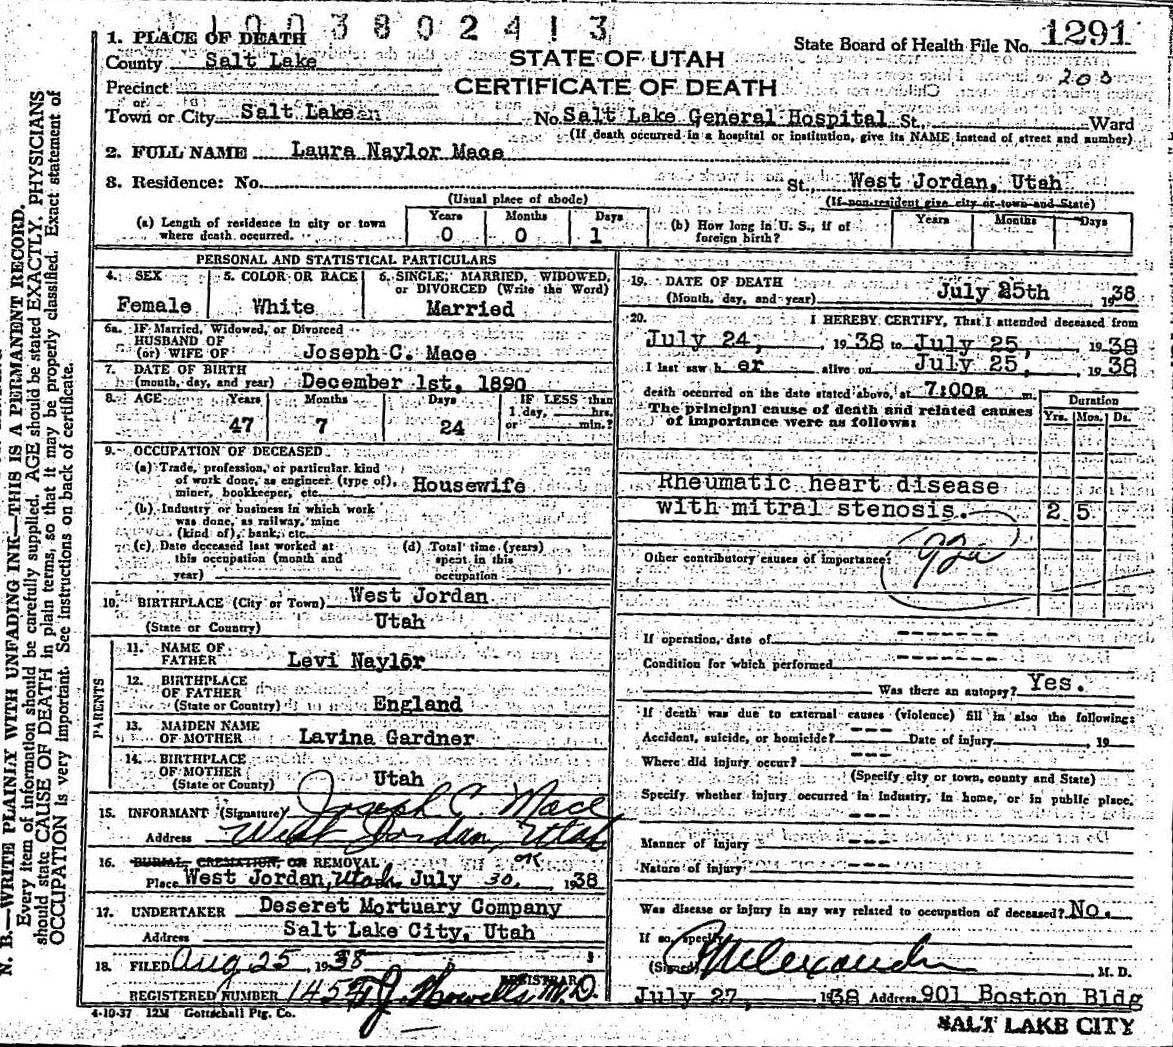 1003802413
1. PLACE OF DEATH
State Board of Health File No. 1291
County Salt Lake
STATE OF UTAH
200
Precinct
CERTIFICATE OF DEATH
or
Town or City Salt Lake No. Salt Lake General Hospital St., Ward
(If death occurred in a hospital or institution, give its NAME instead of street and number)
2. FULL NAME Laura Naylor Mace
3. Residence: No. St., West Jordan, Utah
(Usual place of abode) (If non-resident give city or town and State)
(a) Length of residence in city or town where death occurred. Years 0 Months 0 Days 1
(b) How long in U. S., if of foreign birth? Years Months Days
PERSONAL AND STATISTICAL PARTICULARS
4. SEX Female
5. COLOR OR RACE White
6. SINGLE, MARRIED, WIDOWED, or DIVORCED (Write the Word) Married
6a. IF Married, Widowed, or Divorced
HUSBAND OF
(or) WIFE OF Joseph C. Mace
7. DATE OF BIRTH
(month, day, and year) December 1st, 1890
8. AGE Years 47 Months 7 Days 24 IF LESS than 1 day, hrs. or min.?
9. OCCUPATION OF DECEASED
(a) Trade, profession, or particular kind
of work done, as engineer (type of),
miner, bookkeeper, etc. Housewife
(b) Industry or business in which work
was done, as railway, mine
(kind of), bank, etc.
(c) Date deceased last worked at
this occupation (month and
year)
(d) Total time (years)
spent in this
occupation
10. BIRTHPLACE (City or Town) West Jordan
(State or Country) Utah
PARENTS
11. NAME OF
FATHER Levi Naylor
12. BIRTHPLACE
OF FATHER
(State or Country) England
13. MAIDEN NAME
OF MOTHER Lavina Gardner
14. BIRTHPLACE
OF MOTHER
(State or County) Utah
15. INFORMANT (Signature) Joseph C. Mace
Address West Jordan, Utah
16. BURIAL, CREMATION, OR REMOVAL OK
Place West Jordan, Utah July 30, 1938
17. UNDERTAKER Deseret Mortuary Company
Address Salt Lake City, Utah
18. FILED Aug 25 1938
REGISTRAR
REGISTERED NUMBER 1452 J. Howells M.D.
4-10-37 12M Gottschall Ptg. Co.
19. DATE OF DEATH
(Month, day, and year) July 25th 1938
20. I HEREBY CERTIFY, That I attended deceased from
July 24, 1938 to July 25, 1938
I last saw h er alive on July 25, 1938
death occurred on the date stated above, at 7:00a m.
The principal cause of death and related causes
of importance were as follows:
Duration
Yrs. Mos. Ds.
Rheumatic heart disease
with mitral stenosis. 2 5
Other contributory causes of importance:
If operation, date of -------
Condition for which performed -------
Was there an autopsy? Yes.
If death was due to external causes (violence) fill in also the following:
Accident, suicide, or homicide? --- Date of injury , 19
Where did injury occur? ---
(Specify city or town, county and State)
Specify whether injury occurred in Industry, in home, or in public place.
---
Manner of injury ---
Nature of injury ---
Was disease or injury in any way related to occupation of deceased? No.
If so, specify
(Signed) M. D.
July 27, 1938 Address 901 Boston Bldg
SALT LAKE CITY
N. B.—WRITE PLAINLY WITH UNFADING INK—THIS IS A PERMANENT RECORD.
Every item of information should be carefully supplied. AGE should be stated EXACTLY. PHYSICIANS
should state CAUSE OF DEATH in plain terms, so that it may be properly classified. Exact statement of
OCCUPATION is very important. See instructions on back of certificate.